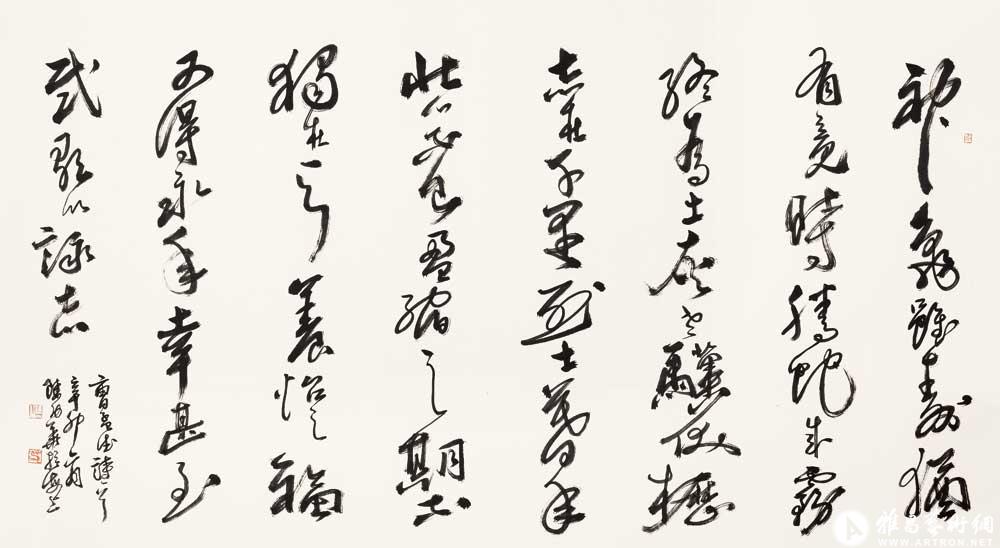 神龜雖壽猶
有竟時騰蛇成霧
終為土灰老驥伏櫪
志在千里烈士暮年
壯心不已盈縮之期不
獨在天養怡之福
可得永年幸甚至
哉歌以詠志
曹孟德詩一首
辛卯
雅昌藝術網
WWW.ARTRON.NET